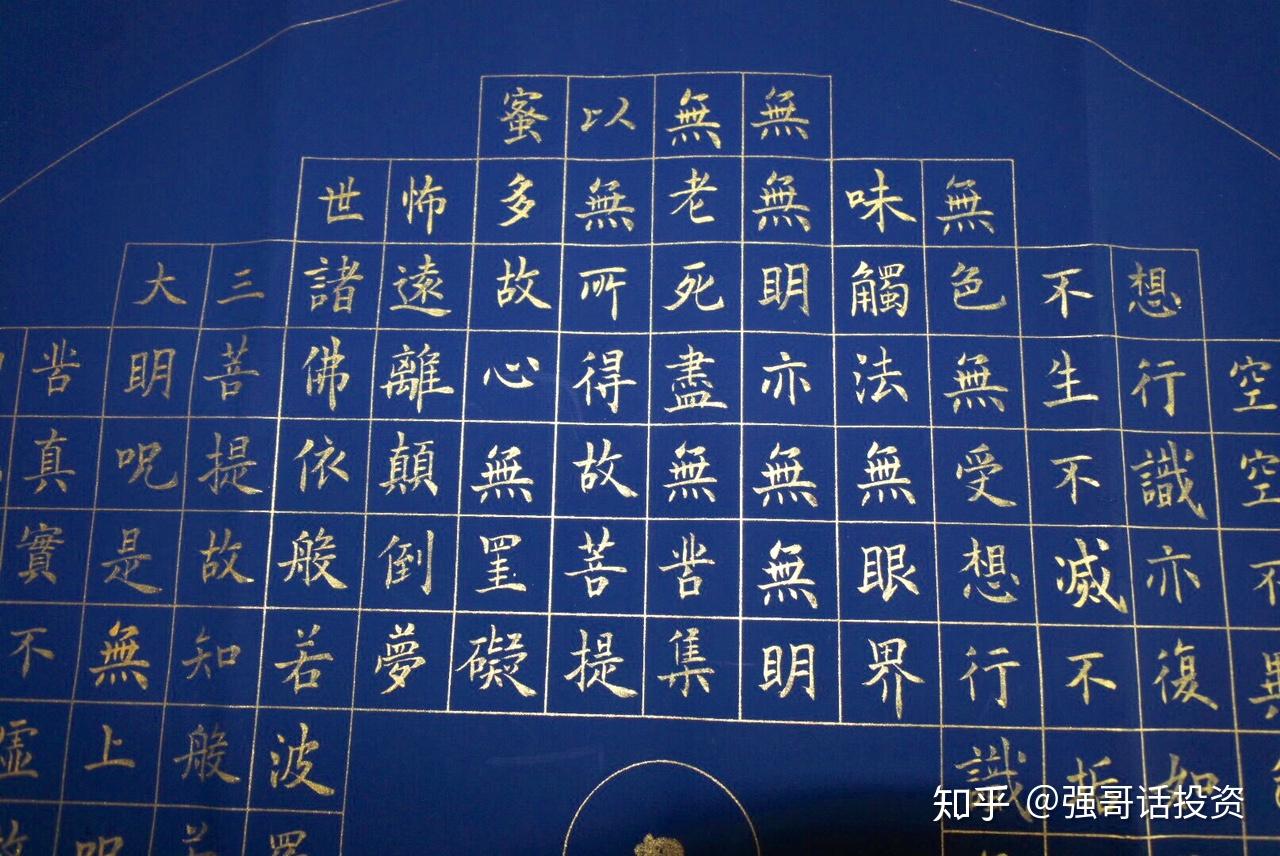 空空不異
想行識亦復如
不生不滅不垢
無色無受想行識
味觸法無眼界
無無明亦無無明
無老死盡無苦集
以無所得故菩提
蜜多故心無罣礙
怖遠離顛倒夢
世諸佛依般若波羅
三菩提故知般若
大明呪是無上呪
苦真實不虛故
知乎 @强哥话投资